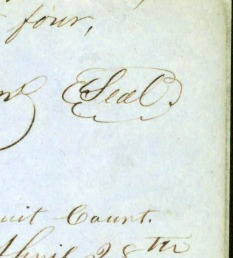 four,
Seal
Court.
April 28th